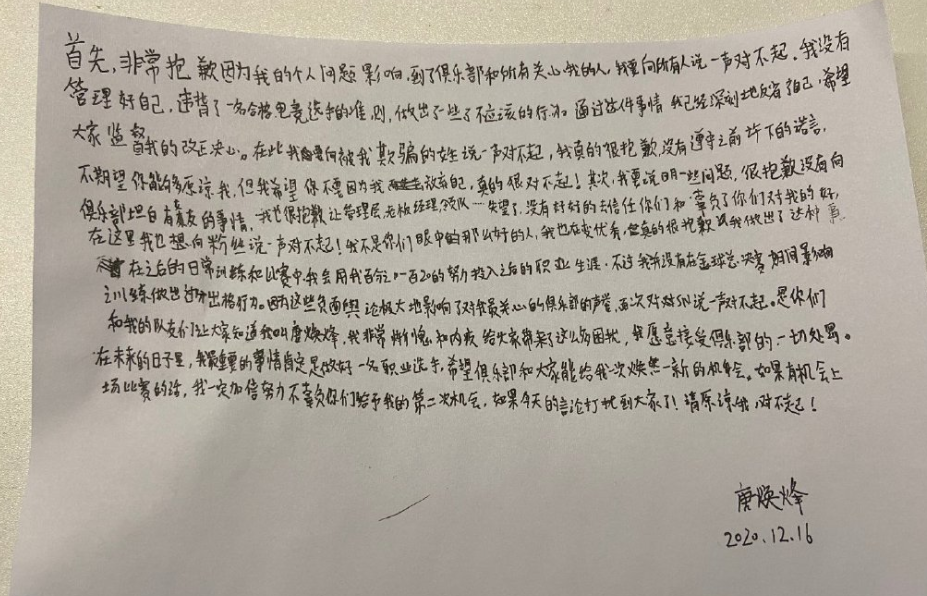 首先,非常抱歉因为我的个人问题影响到了俱乐部和所有关心我的人,我要向所有人说一声对不起。我没有
管理好自己,违背了一名合格电竞选手的准则,做出了一些了不应该的行为。通过这件事情我已经深刻地反省了自己,希望
大家监督我的改正决心。在此我要向被我欺骗的女生说一声对不起,我真的很抱歉没有遵守之前许下的诺言,
不期望你能够原谅我,但我希望你不要因为我放弃自己,真的很对不起!其次,我要说明一些问题,很抱歉没有向
俱乐部坦白有女友的事情,我也很抱歉让管理层老板经理领队…失望了,没有好好的去信任你们和辜负了你们对我的好,
在这里我也想向粉丝说一声对不起!我不是你们眼中的那么好的人,我也在变优秀,真的很抱歉以我做出了这种事
在之后的日常训练和比赛中,我会用我百分之一百20的努力投入之后的职业生涯,不过我并没有在全球总决赛期间影响
训练做出过分出格行为。因为这些负面舆论极大地影响了对我最关心的俱乐部的声誉,再次对SN说一声对不起。是你们
和我的队友们让大家知道我叫唐焕烽,我非常惭愧和内疚给大家带来了这么多困扰,我愿意接受俱乐部的一切处罚。
在未来的日子里,我最重要的事情肯定是做好一名职业选手,希望俱乐部和大家能给我一次焕然一新的机会。如果有机会上
场比赛的话,我一定加倍努力不辜负你们给予我的第二次机会,如果今天的言论打扰到大家了!请原谅我,对不起!
唐焕烽
2020.12.16